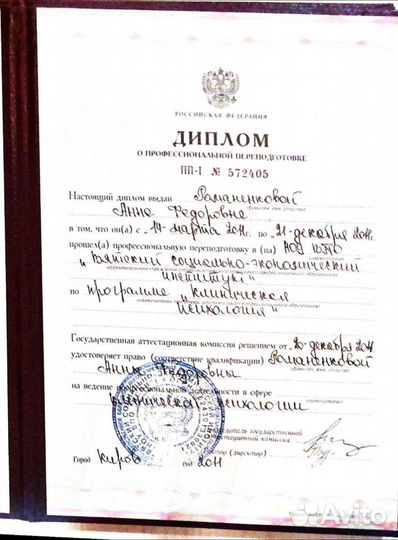 РОССИЙСКАЯ ФЕДЕРАЦИЯ
ДИПЛОМ
О ПРОФЕССИОНАЛЬНОЙ ПЕРЕПОДГОТОВКЕ
ПП-I № 572405
Настоящий диплом выдан Романенковой
Анне Федоровне
в том, что он(а) с 14 марта 2011г. по 21 декабря 2011г.
прошел(а) профессиональную переподготовку в (на)
"Вятский социально-экономический
институт"
по программе "Клиническая
психология"
Государственная аттестационная комиссия решением от 20 декабря 2011
удостоверяет право (соответствие квалификации) Романенковой
Анны Федоровны
на ведение профессиональной деятельности в сфере
клинической психологии
Председатель государственной
аттестационной комиссии
Ректор (директор)
Город Киров год 2011
Avito